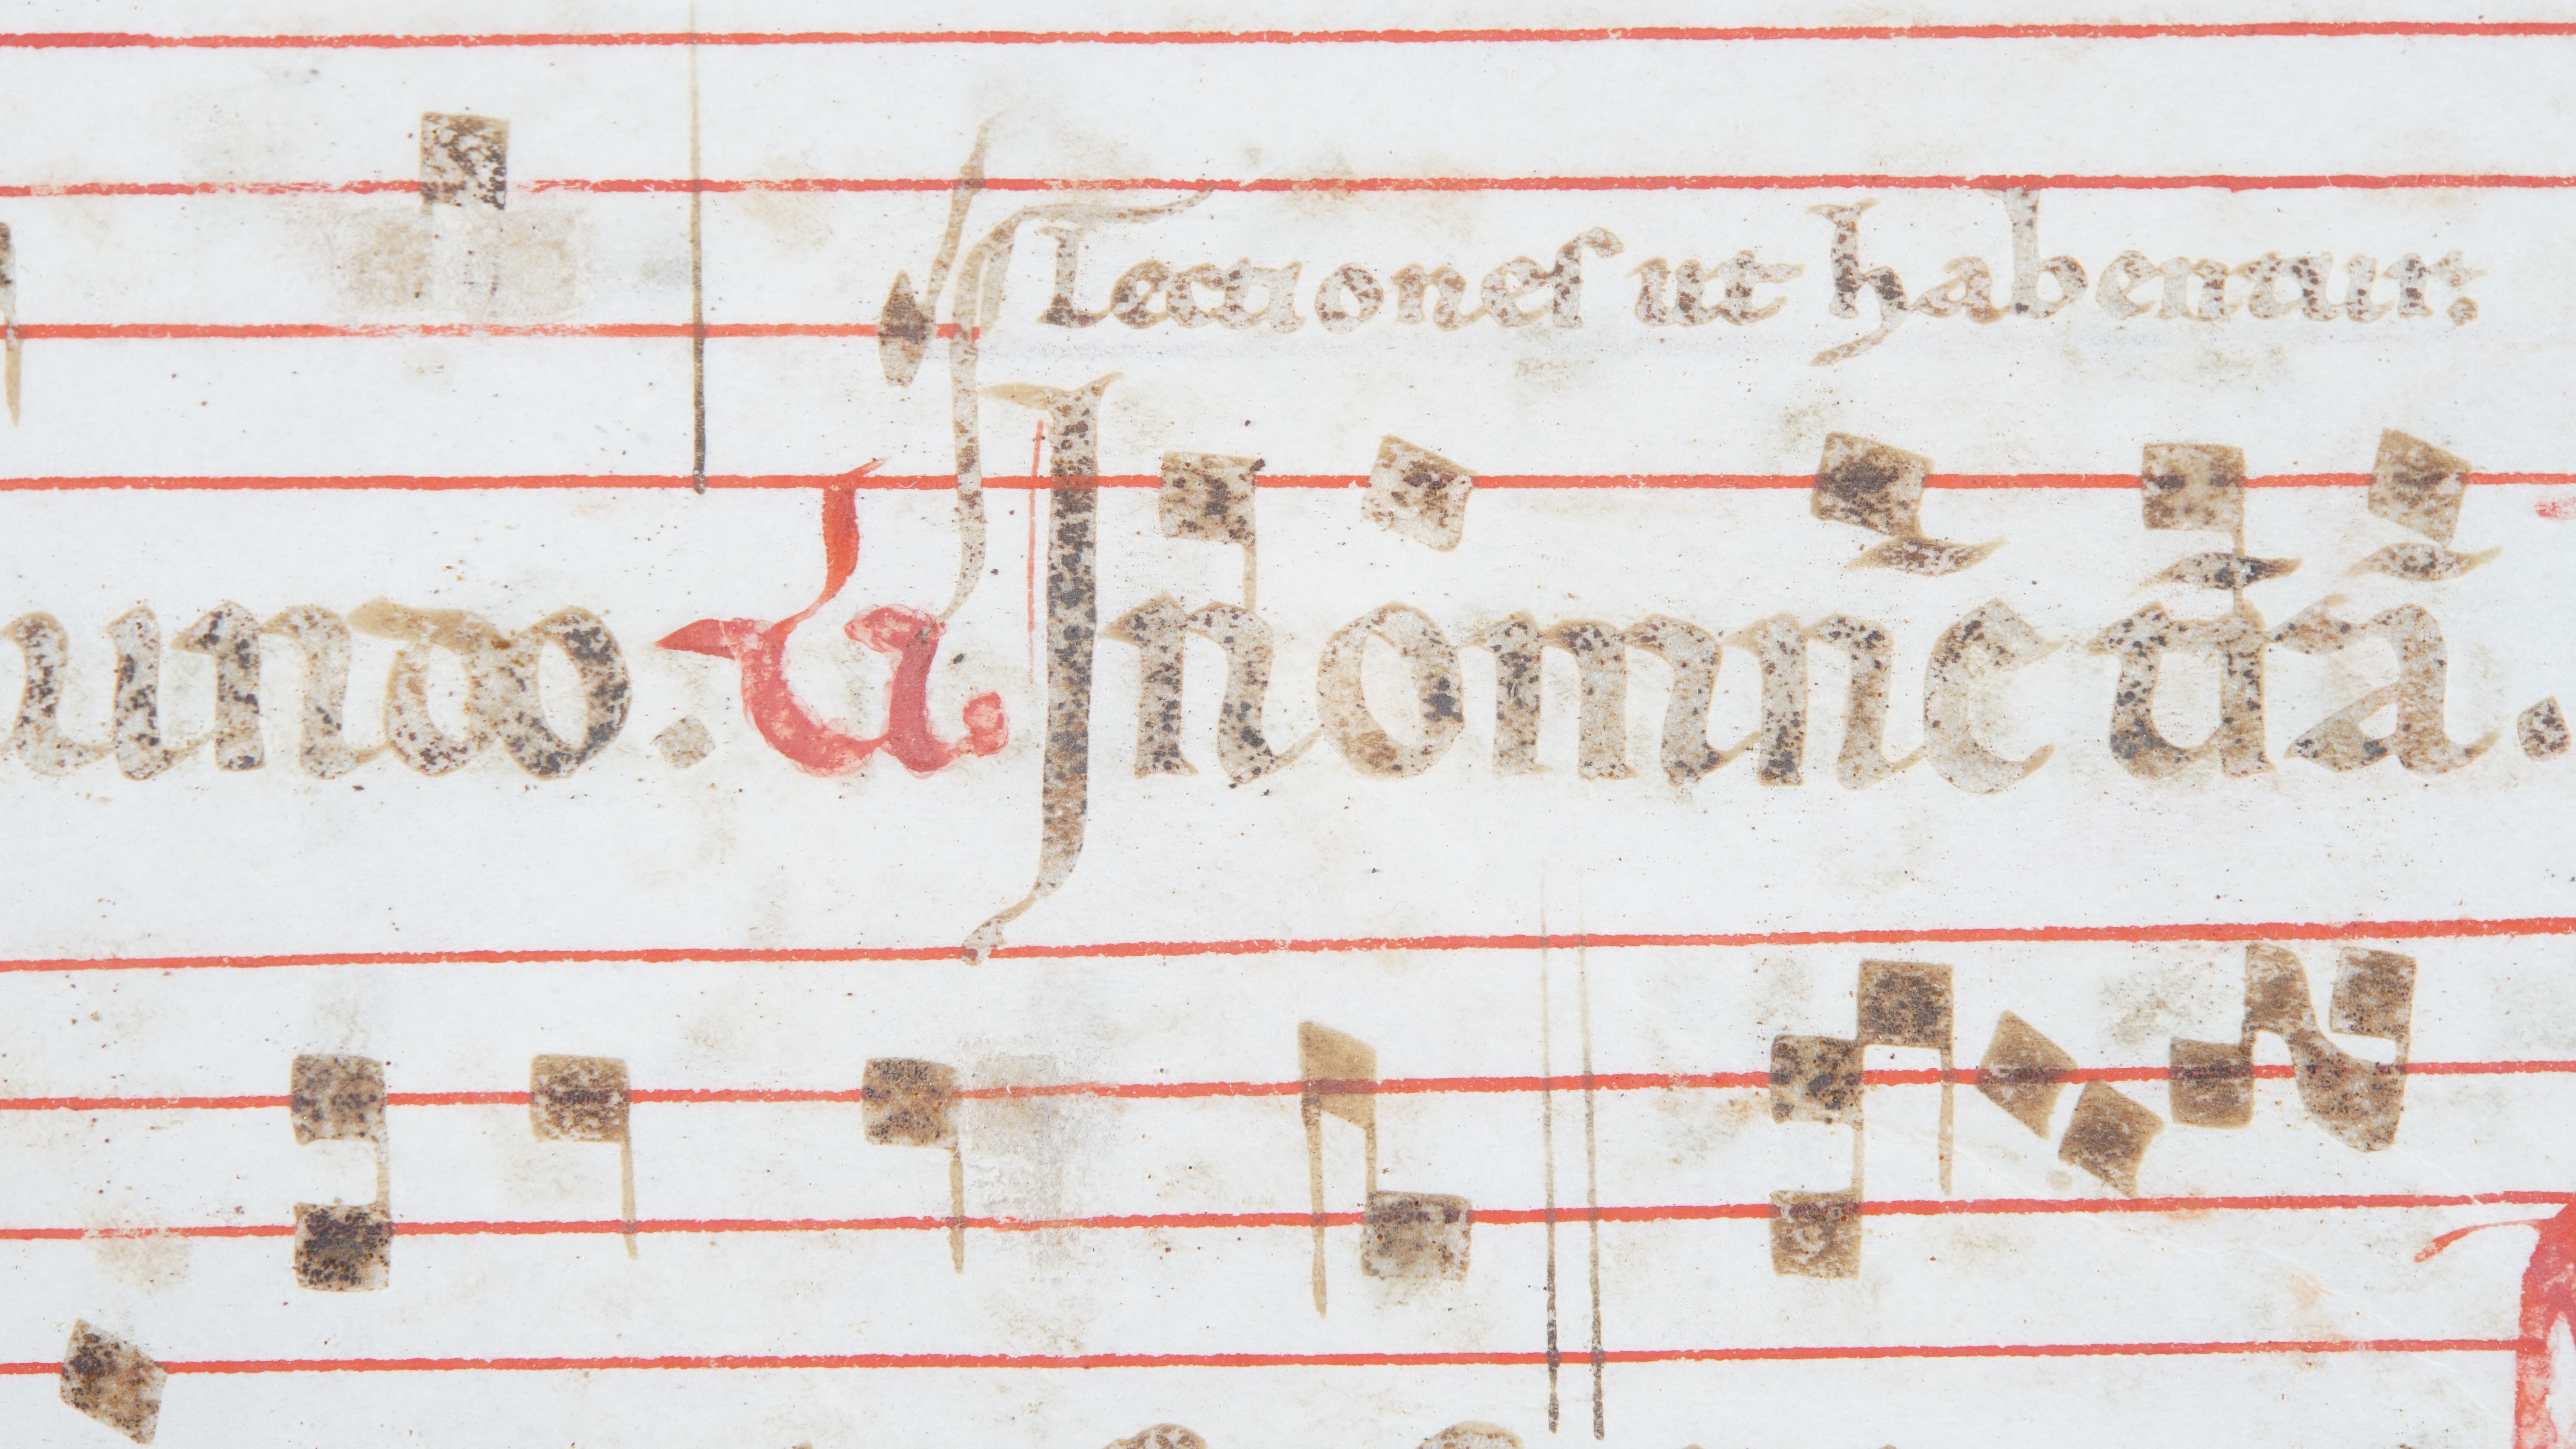 Lectiones ut habentur.
undo. V Jn omnē t̄rā.